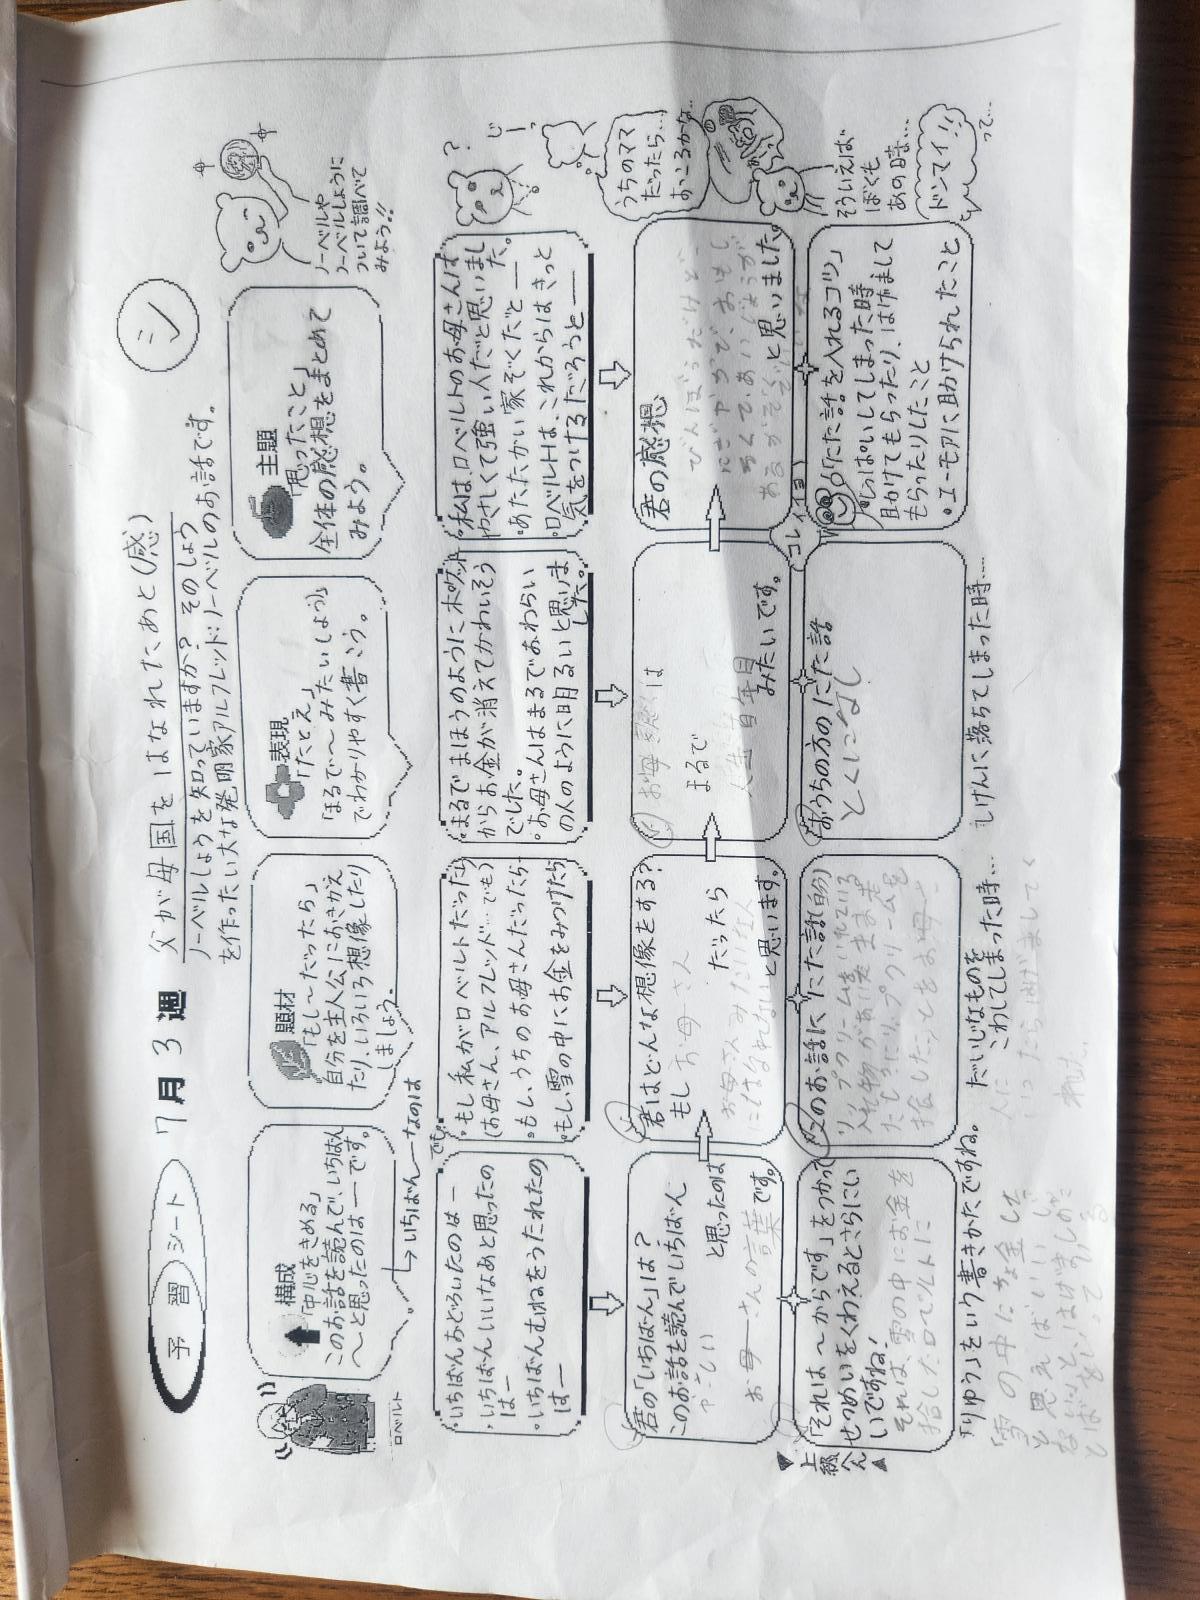 予習シート
7月3週
父が母国をはなれたあと(感)
シ
ノーベルしょうを知っていますか? そのしょう
を作ったい大な発明家アルフレッド・ノーベルのお話です。
ロベルト
構成
「中心をきめる」
このお話を読んで、いちばん
〜と思ったのは ― です。
→いちばん ― なのは
でも。
題材
「もし〜だったら」
自分を主人公におきかえ
たり、いろいろ想像したり
しましょう。
表現
「たとえ」
「まるで〜みたいしょう」
でわかりやすく書こう。
主題
「思ったこと」
全体の感想をまとめて
みよう。
ノーベルや
ノーベルしょうに
ついて調べて
みよう!!
・いちばんおどろいたのは ―
・いちばんいいなあと思ったの
は ―
・いちばんむねをうたれたの
は ―
・もし私がロベルトだったら
(お母さん、アルフレッド…でも)
・もし、うちのお母さんだったら
・もし、雪の中にお金をみつけたら
・まるでまほうのように木吹が
からお金が消えてかわいそう
でした。
・お母さんはまるでおわらい
の人のように明るいと思いま
した。
・私は、ロベルトのお母さんは、
やさしくて強い人だと思いまし
た。
・あたたかい家ぞくだと ―
・ロベルトは、これからはきっと
気をつけるだろうと ―
君の「いちばん」は?
このお話を読んでいちばん
やさしい
と思ったのは
お母さんの言葉です。
君はどんな想像をする?
もし お母さん
だったら
お母さんみたいな人
にはなれない
と思います。
お母さんは
まるで
みたいです。
君の感想
びんぼうだけど
にぎやかで、おもし
ろくて、
と思いました。
うちのママ
だったら…
おこるかな…
コレイヨ
上級へん
「それは〜からです」をつかって
せつめいをくわえるとさらにい
いですね!
それは、雪の中にお金を
拾したロベルトに
「りゆう」をいう書きかたですね。
「雪の中にお金した
と思えばいいじ
ないと、はげましのこ
とばをいっている
君のお話ににた話(自分)
リップクリームをいれている
入れ物があいたまま
たときにリップクリームを
だいじなものを
こわしてしまった時…
おうちの方のにた話
とくになし
しけんに落ちてしまった時…
「にた話を入れるコツ」
・しっぱいしてしまった時
助けてもらったり、はげまして
もらったりしたこと
・ユーモアに助けられたこと
そういえば
ぼくも
あの時…
ドンマイ!!
って…